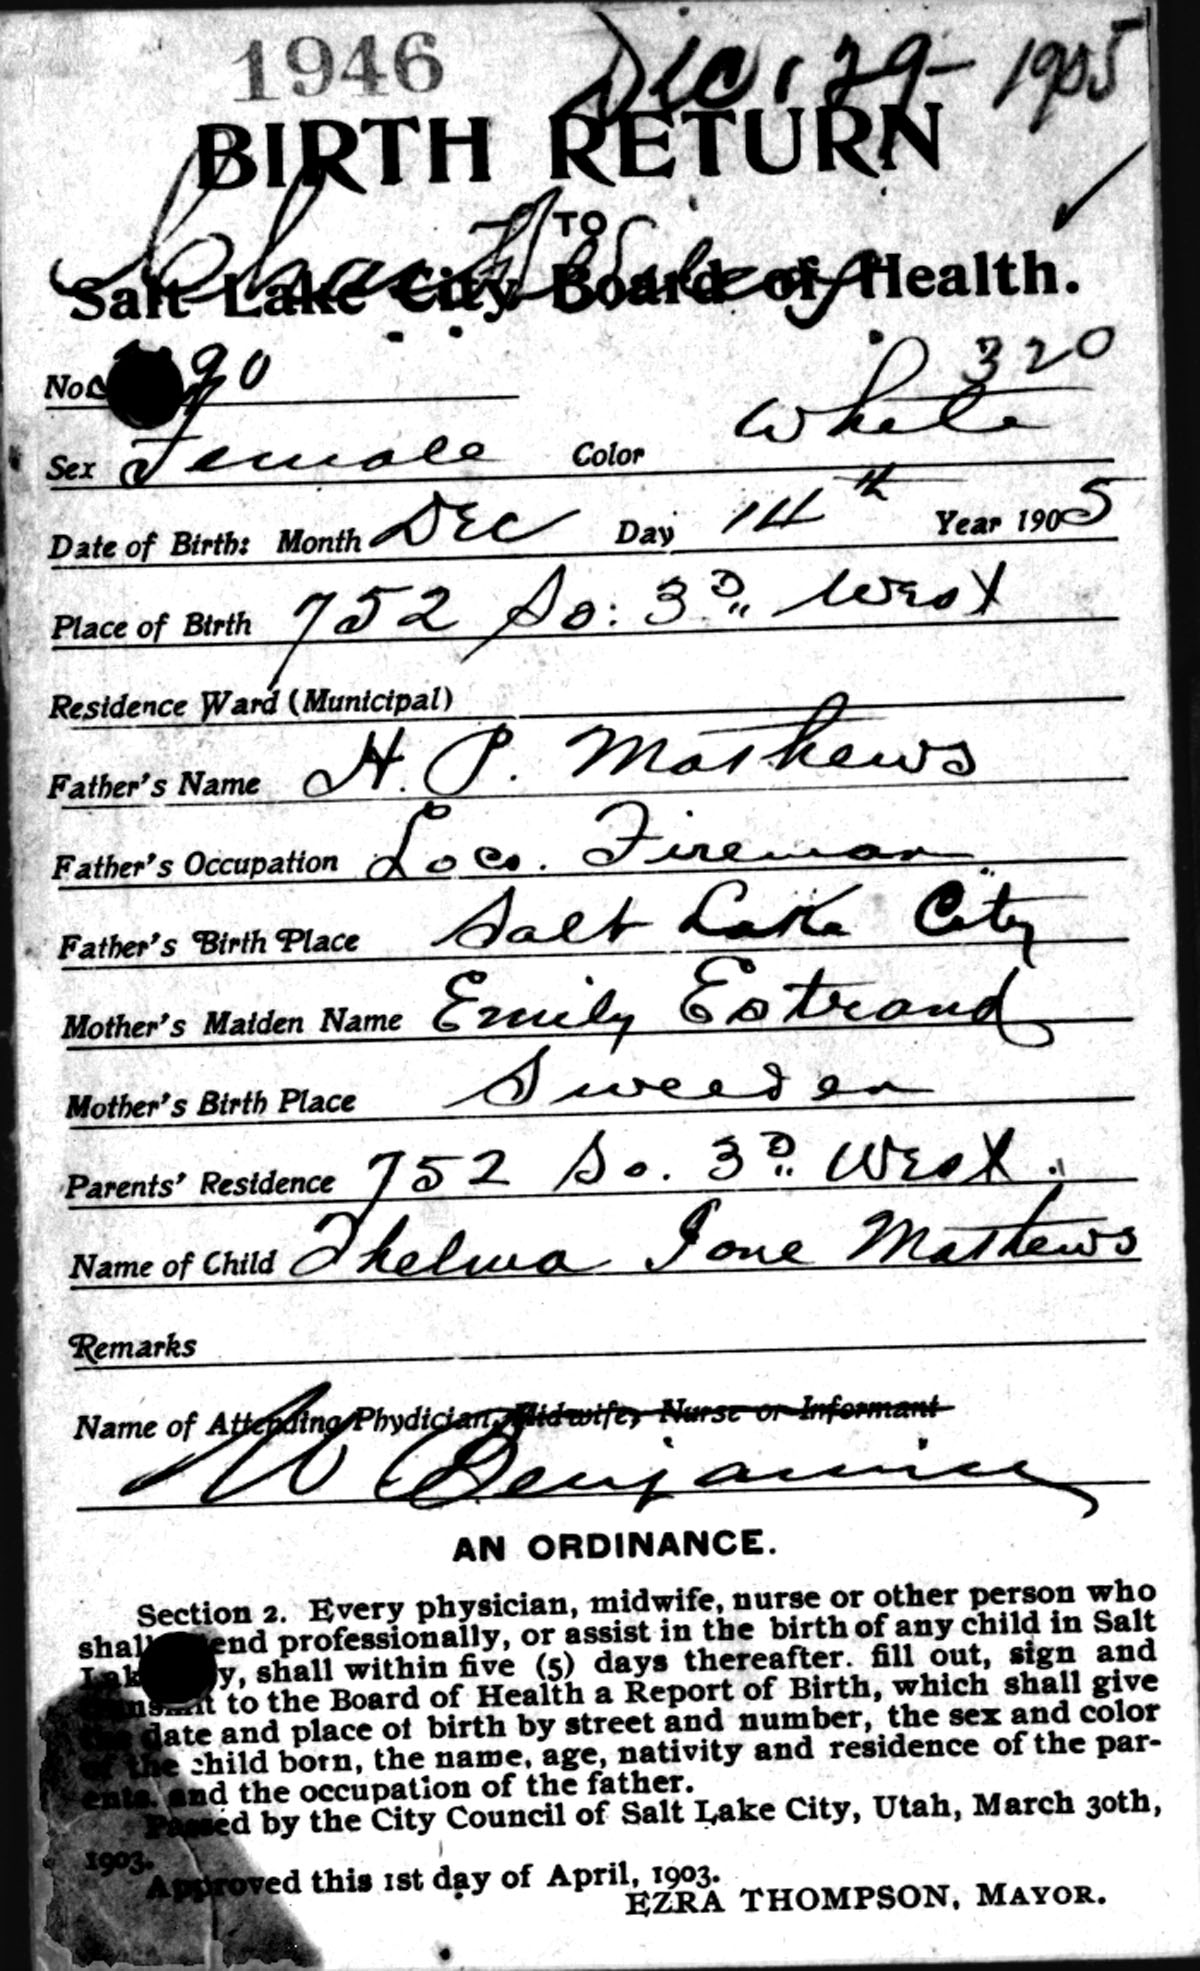 1946
Dec. 29 - 1905
BIRTH RETURN
TO
Salt Lake City Board of Health.
320
No. 90
Sex Female Color White
Date of Birth: Month Dec Day 14th Year 1905
Place of Birth 752 So: 3D West
Residence Ward (Municipal)
Father's Name H. P. Mathews
Father's Occupation Loco. Fireman
Father's Birth Place Salt Lake City
Mother's Maiden Name Emily Estrand
Mother's Birth Place Sweeden
Parents' Residence 752 So. 3D West.
Name of Child Thelma Ione Mathews
Remarks
Name of Attending Phydician, Midwife, Nurse or Informant
W Benjamin
AN ORDINANCE.
Section 2. Every physician, midwife, nurse or other person who
shall end professionally, or assist in the birth of any child in Salt
Lak y, shall within five (5) days thereafter. fill out, sign and
transmit to the Board of Health a Report of Birth, which shall give
the date and place of birth by street and number, the sex and color
of the child born, the name, age, nativity and residence of the par-
ents, and the occupation of the father.
Passed by the City Council of Salt Lake City, Utah, March 30th,
1903.
Approved this 1st day of April, 1903.
EZRA THOMPSON, MAYOR.